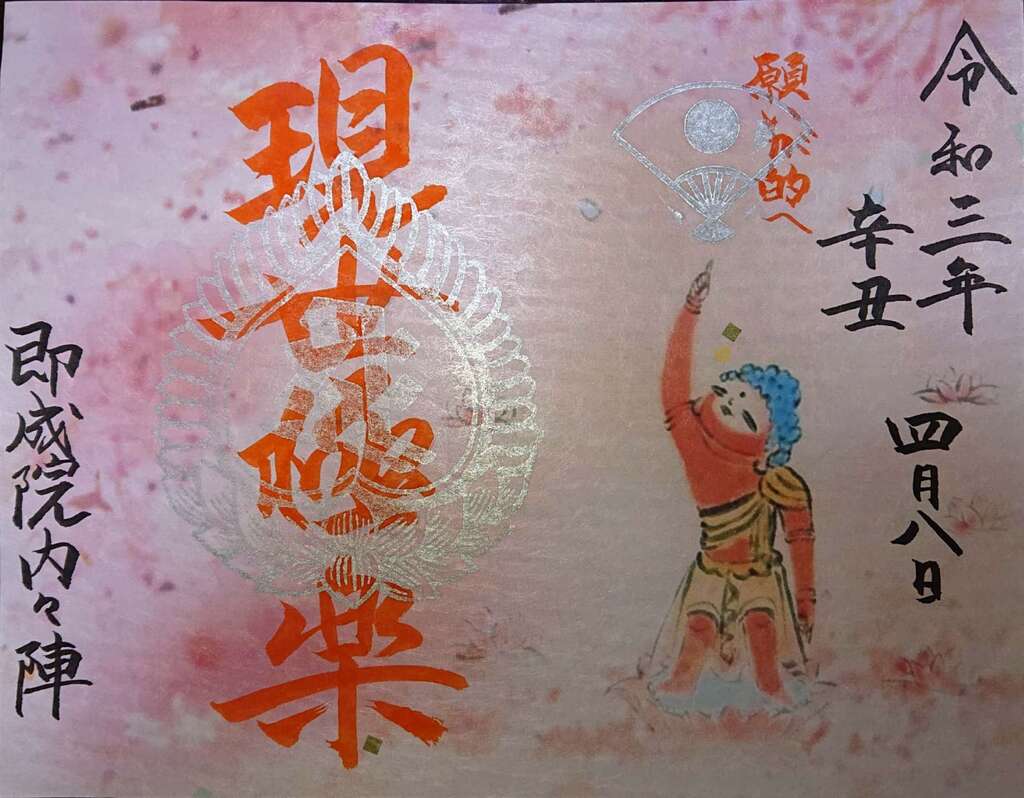 令和三年 四月八日
辛丑
願いが的へ
現世極楽
即成院内々陣